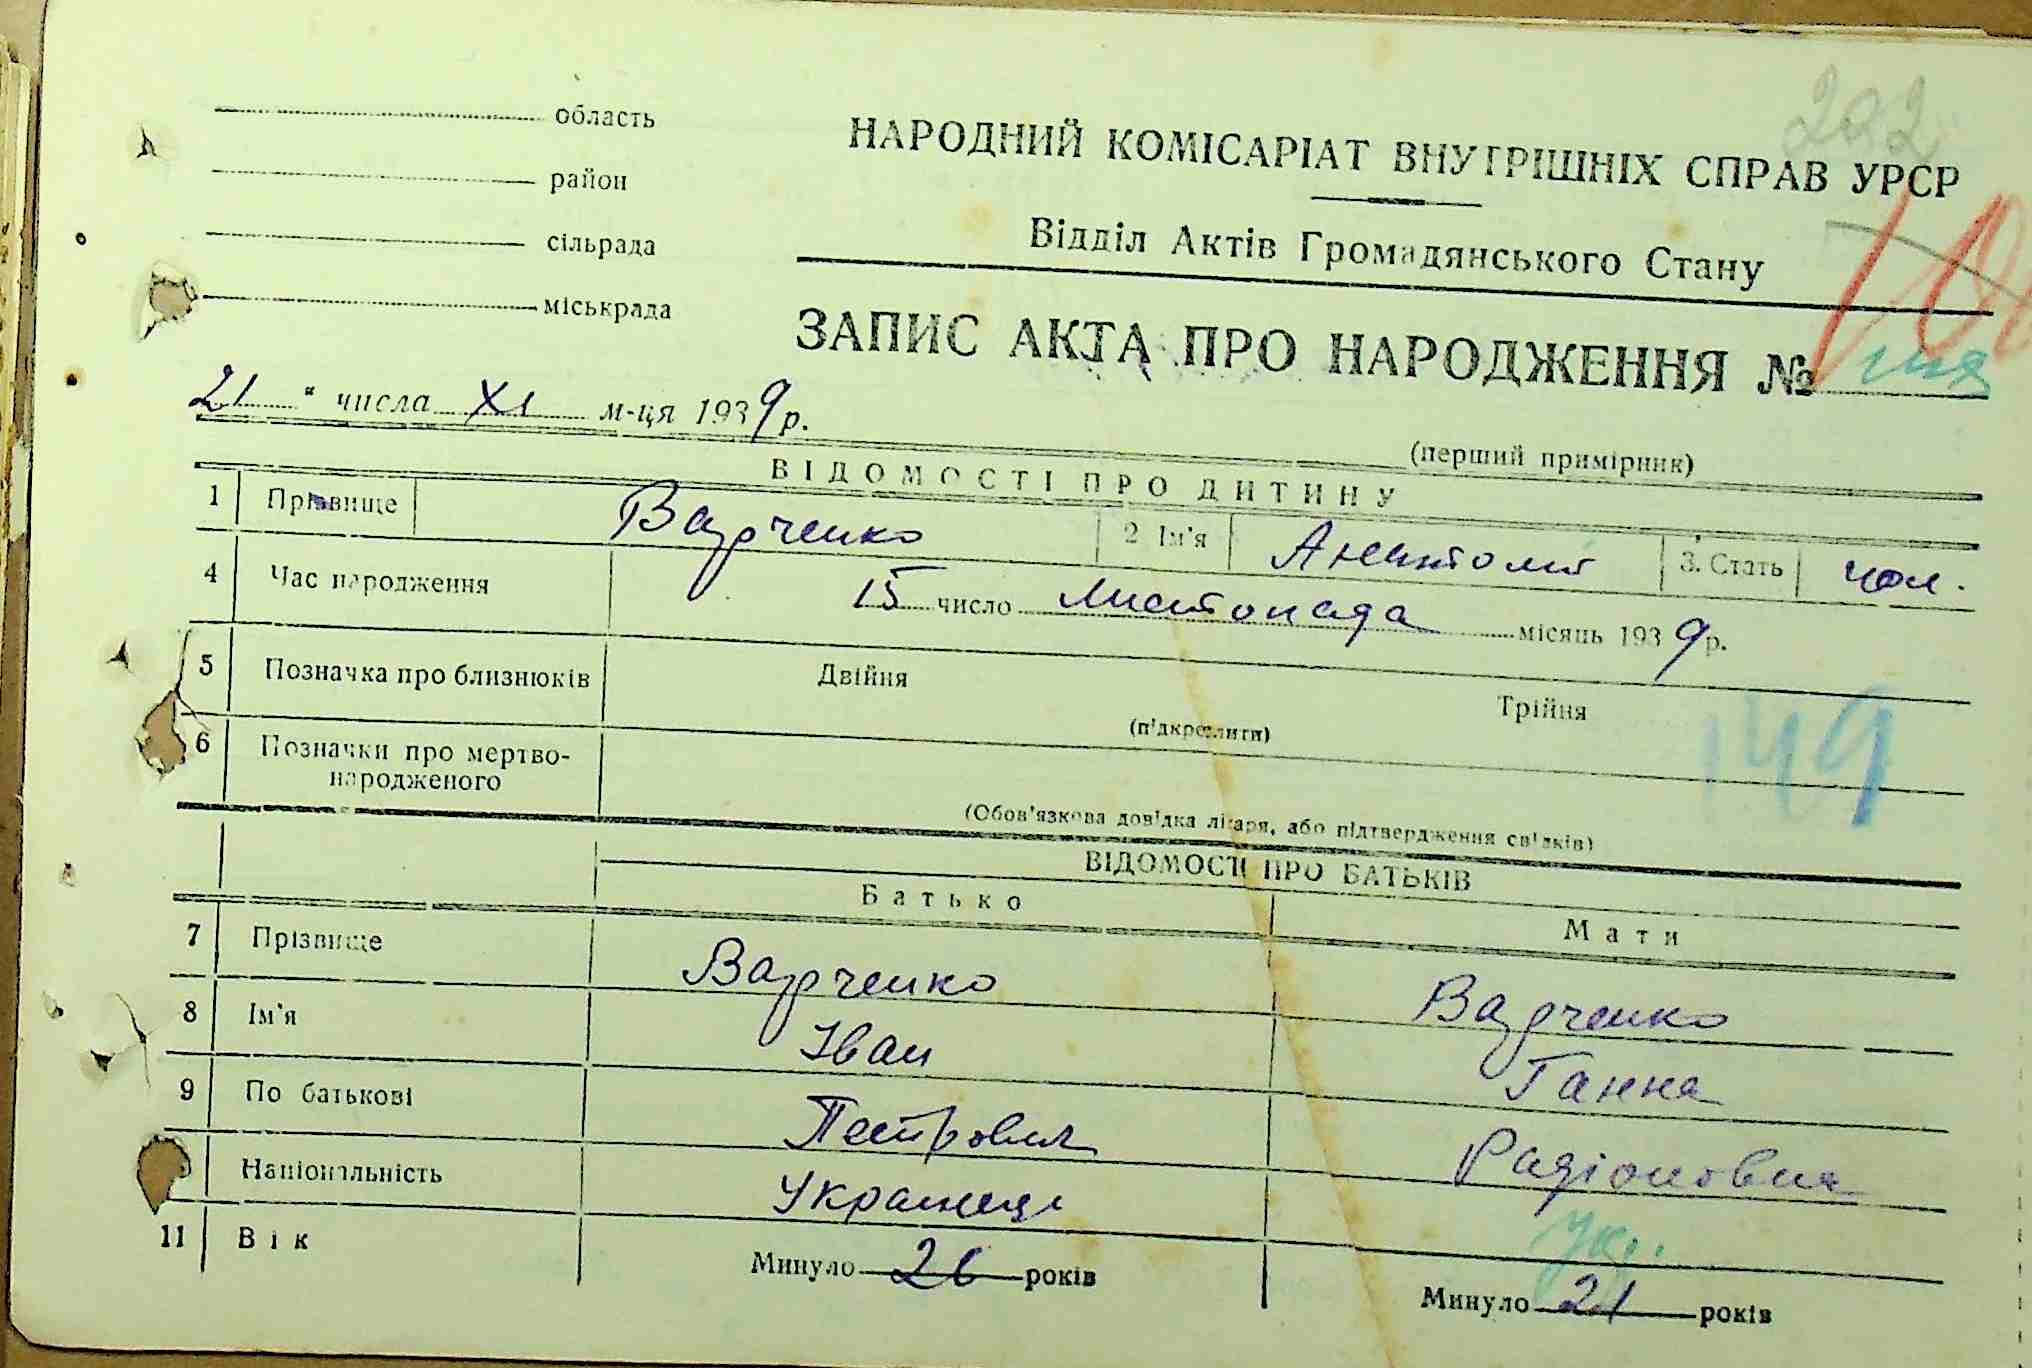 202
область
НАРОДНИЙ КОМІСАРІАТ ВНУТРІШНІХ СПРАВ УРСР
район
Відділ Актів Громадянського Стану
сільрада
міськрада
ЗАПИС АКТА ПРО НАРОДЖЕННЯ №
21 " числа XI м-ця 1939 р.
(перший примірник)
ВІДОМОСТІ ПРО ДИТИНУ
1 Прізвище Варченко 2 Ім'я Анатолій 3. Стать чол.
4 Час народження 15 число листопада місяць 1939 р.
5 Позначка про близнюків Двійня Трійня
(підкреслити)
149
6 Позначки про мертво-
народженого
(Обов'язкова довідка лікаря, або підтвердження свідків)
ВІДОМОСТІ ПРО БАТЬКІВ
Батько Мати
7 Прізвище Варченко Варченко
8 Ім'я Іван Ганна
9 По батькові Петрович Радіоновна
Національність Українець Укр.
11 Вік Минуло 26 років Минуло 21 років